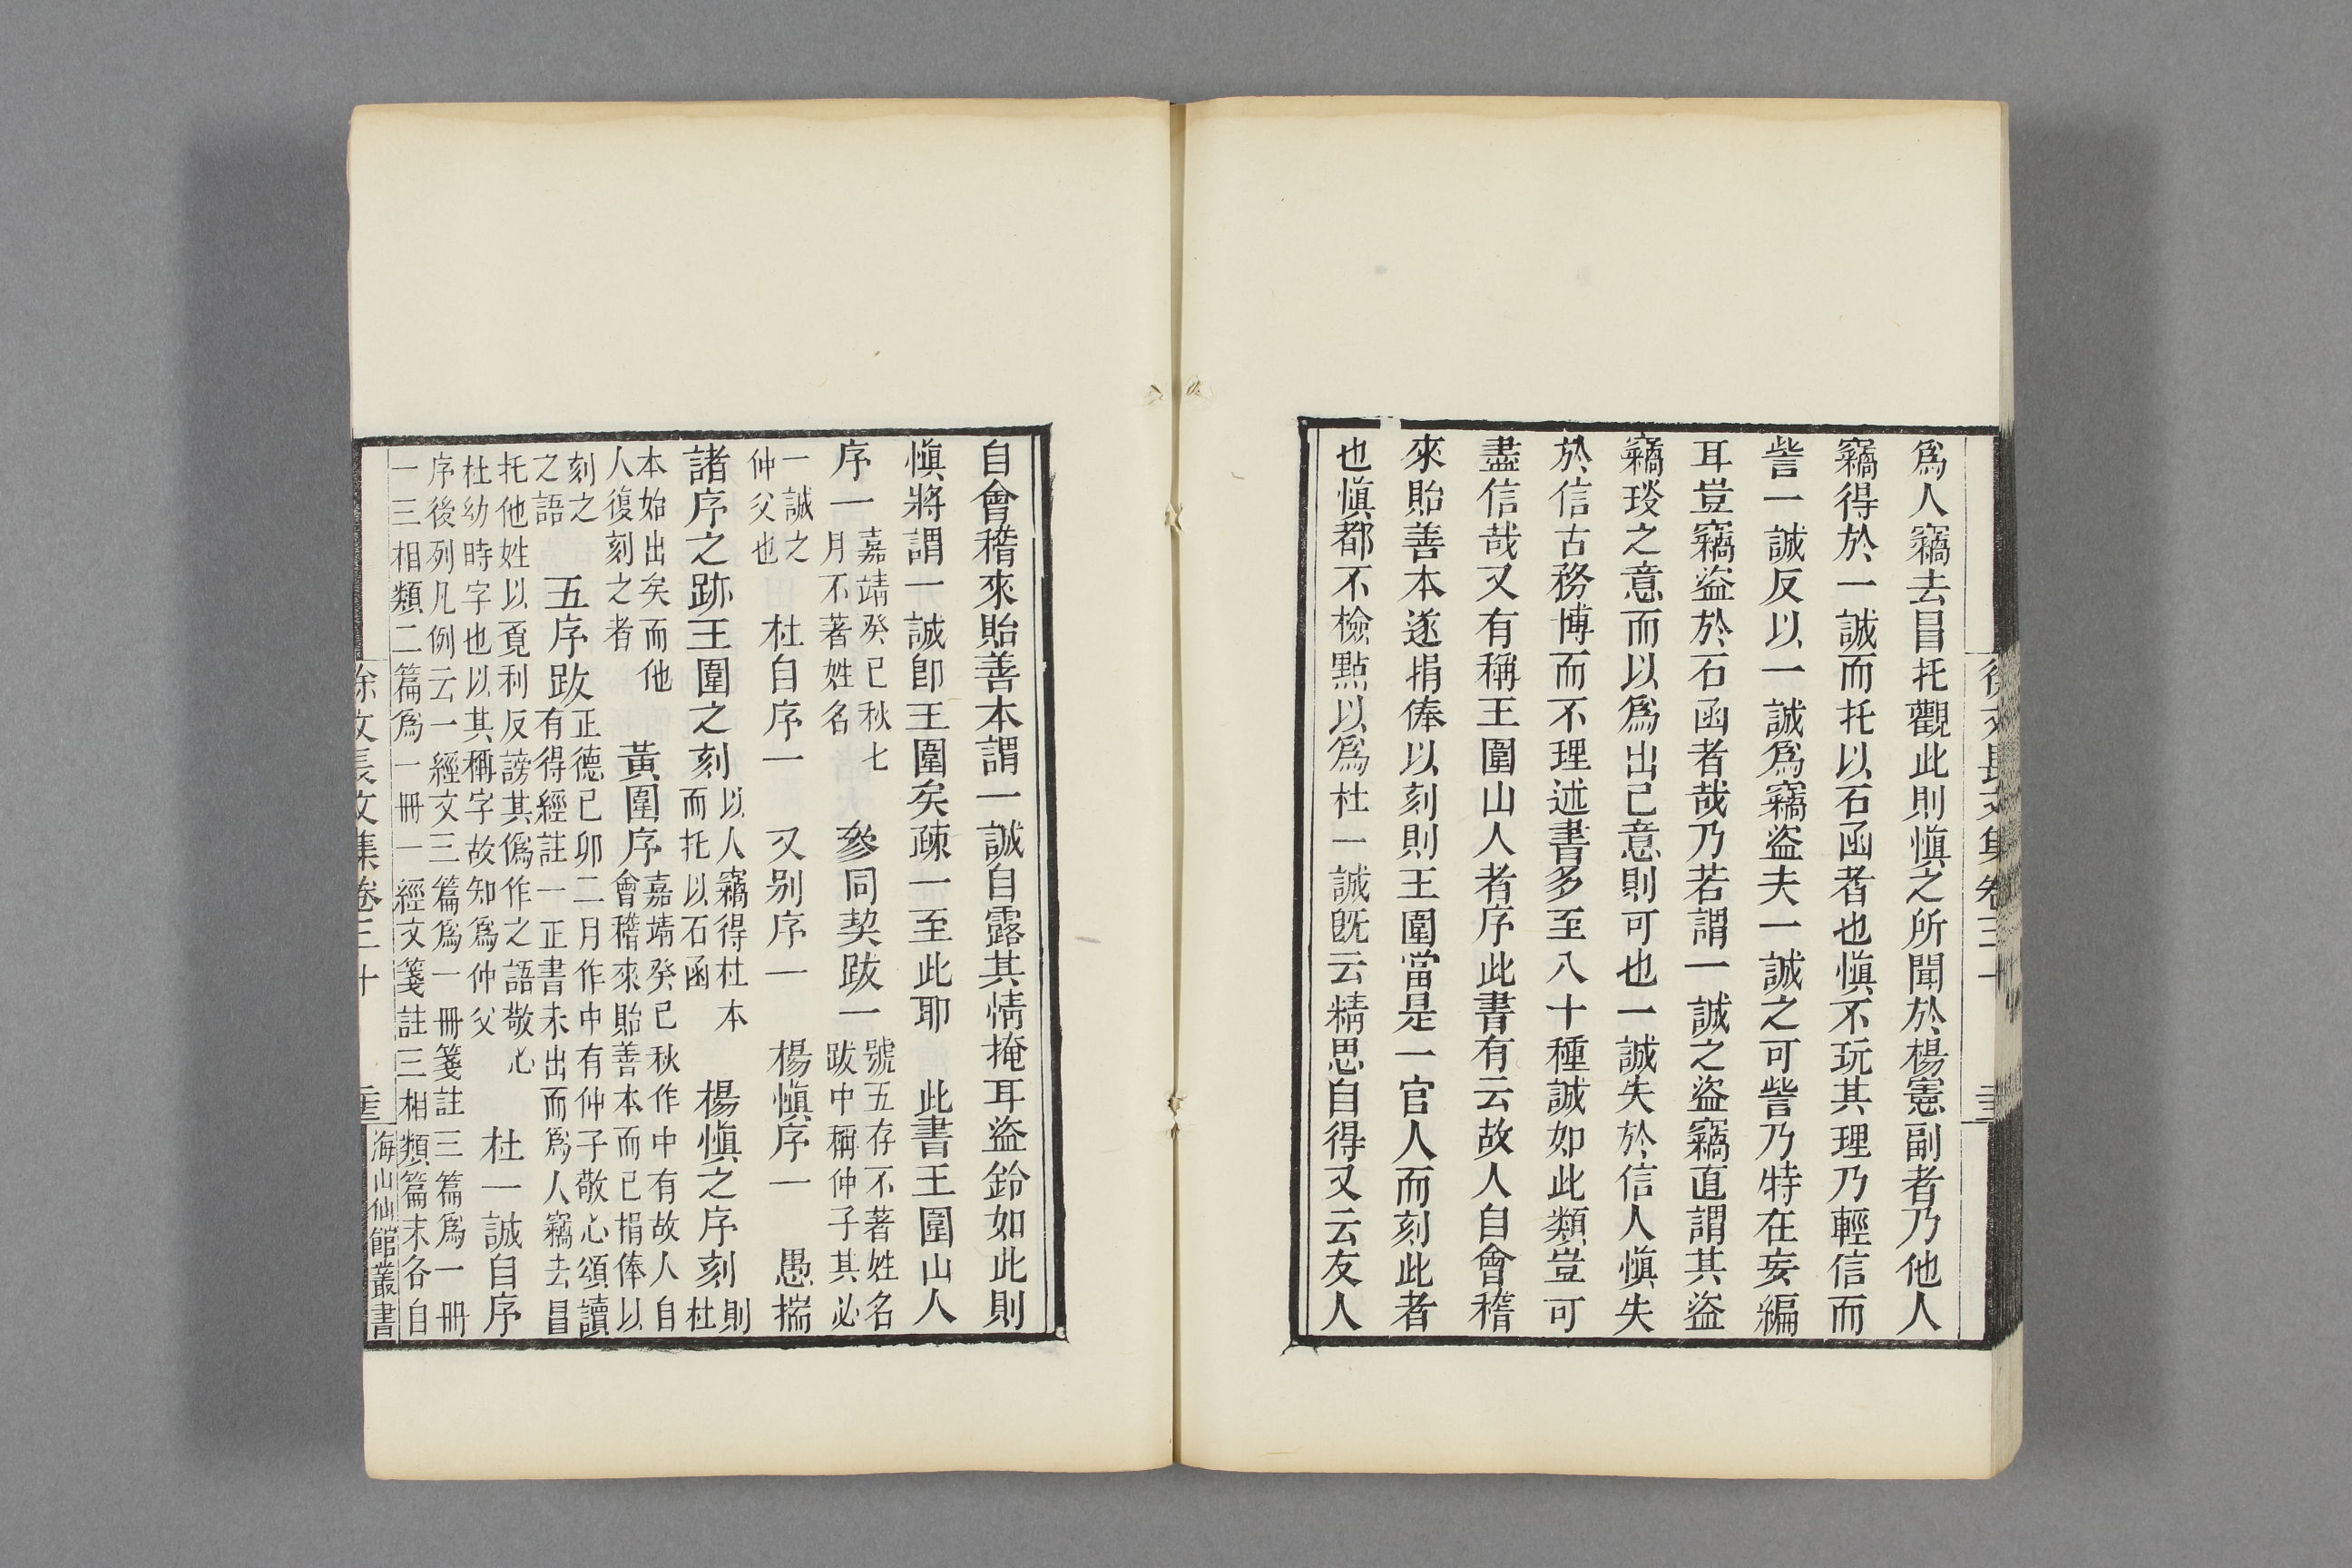 爲人竊去冒托觀此則愼之所聞於楊憲副者乃他人
竊得於一誠而托以石函者也愼不玩其理乃輕信而
訾一誠反以一誠爲竊盜夫一誠之可訾乃特在妄編
耳豈竊盜於石函者哉乃若謂一誠之盜竊直謂其盜
竊琰之意而以爲出己意則可也一誠失於信人愼失
於信古務博而不理述書多至八十種誠如此類豈可
盡信哉又有稱王圍山人者序此書有云故人自會稽
來貽善本遂捐俸以刻則王圍當是一官人而刻此者
也愼都不檢點以爲杜一誠旣云精思自得又云友人
徐文長文集卷三十
自會稽來貽善本謂一誠自露其情掩耳盜鈴如此則
愼將謂一誠卽王圍矣疎一至此耶　此書王圍山人
序一
嘉靖癸巳秋七
月不著姓名
參同契跋一
號五存不著姓名
跋中稱仲子其必
一誠之
仲父也
杜自序一　又别序一　楊愼序一　愚揣
諸序之跡王圍之刻
以人竊得杜本
而托以石函
楊愼之序刻
則
杜
本始出矣而他
人復刻之者
黃圍序
嘉靖癸巳秋作中有故人自
會稽來貽善本而已捐俸以
刻之
之語
五序跋
正德己卯二月作中有仲子敬心頌讀
有得經註一正書未出而爲人竊去冒
托他姓以覔利反謗其僞作之語敬心
杜幼時字也以其稱字故知爲仲父
杜一誠自序
序後列凡例云一經文三篇爲一冊箋註三篇爲一冊
一三相類二篇爲一冊一經文箋註三相類篇末各自
徐文長文集卷三十
海山仙館叢書